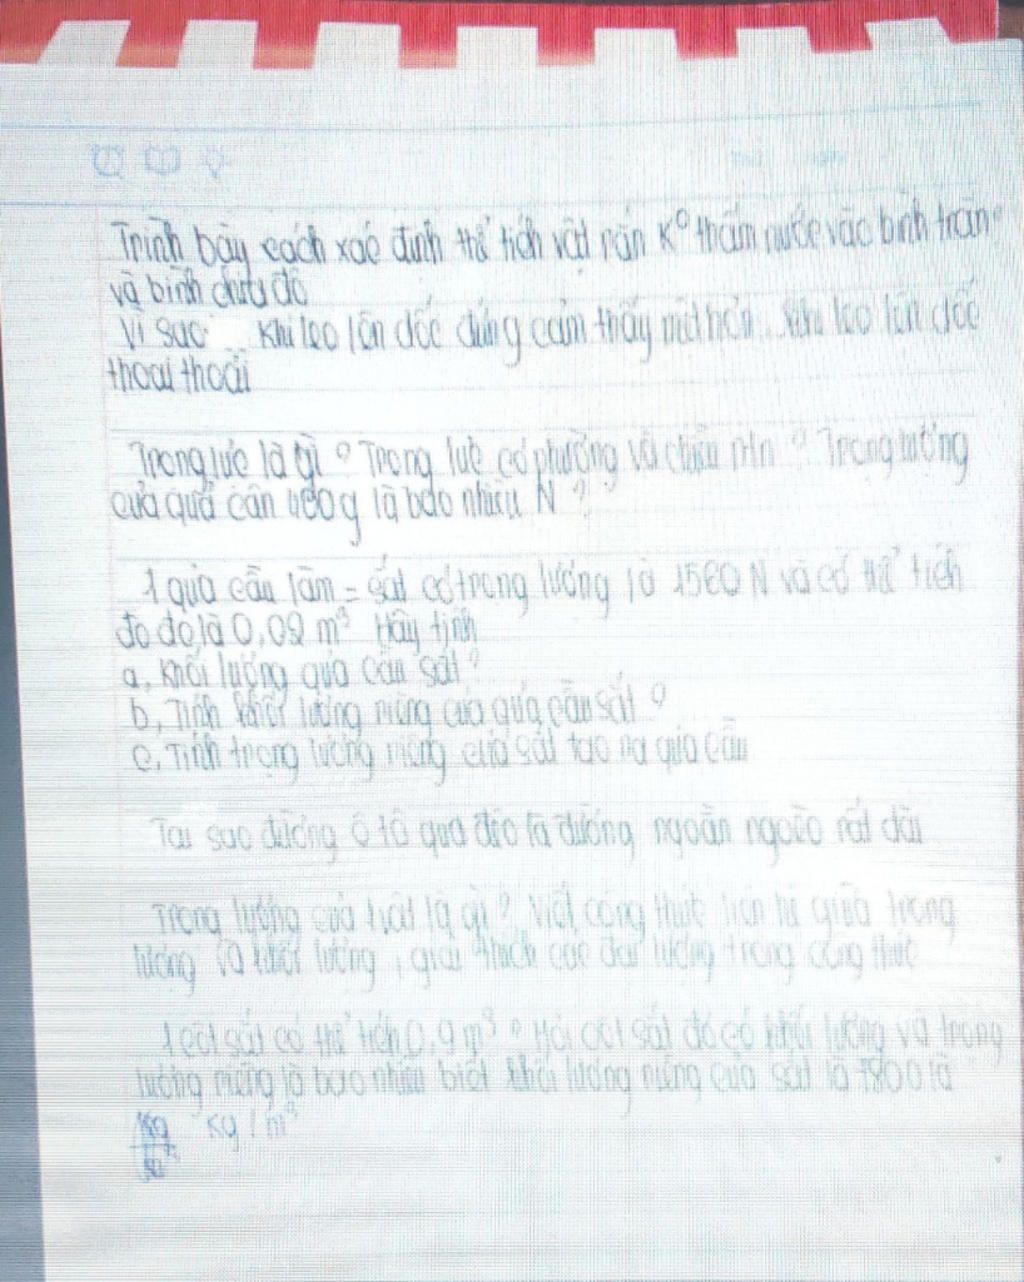 Trình bày cách xác định thể tích vật rắn K° thấm nước vào bình tràn
và bình chưa độ
Vì sao khi leo lên dốc đứng cảm thấy mệt hơn khi leo lên dốc
thoai thoải
Trọng lực là gì ? Trọng lực có phương và chiều ntn ? Trọng lượng
của quả cân 400g là bao nhiêu N ?
1 quả cầu làm = sắt có trọng lượng là 1560 N và có thể tích
đo đó là 0,02 m³ Hãy tính
a, Khối lượng quả cầu sắt ?
b, Tính khối lượng riêng của quả cầu sắt ?
c, Tính trọng lượng riêng của sắt tạo ra quả cầu
Tại sao đường ô tô qua đèo là đường ngoằn ngoèo rất dài
Trọng lượng của vật là gì ? Viết công thức liên hệ giữa trọng
lượng và khối lượng, giải thích các đại lượng trong công thức
1 cột sắt có thể tích 0,9 m³ ? Hỏi cột sắt đó có khối lượng và trọng
lượng riêng là bao nhiêu biết khối lượng riêng của sắt là 7800 là
Kg / m³